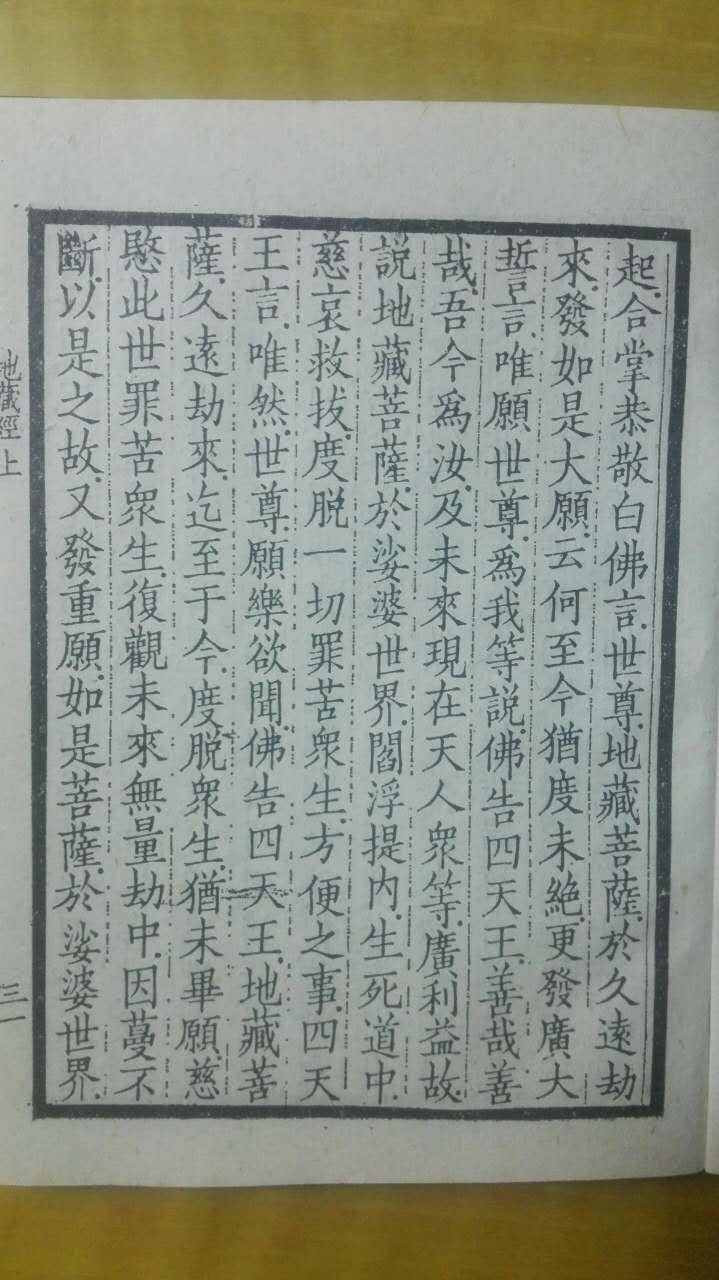 起.合掌恭敬白佛言.世尊.地藏菩薩.於久遠劫
來.發如是大願.云何至今猶度未絕.更發廣大
誓言.唯願世尊.為我等說.佛告四天王.善哉善
哉.吾今為汝.及未來現在天人衆等.廣利益故.
說地藏菩薩.於娑婆世界.閻浮提內.生死道中.
慈哀救拔.度脫一切罪苦衆生.方便之事.四天
王言.唯然.世尊.願樂欲聞.佛告四天王.地藏菩
薩.久遠劫來.迄至于今.度脫衆生.猶未畢願.慈
愍此世罪苦衆生.復觀未來無量劫中.因蔓不
斷.以是之故.又發重願.如是菩薩.於娑婆世界.
地藏經上
三一